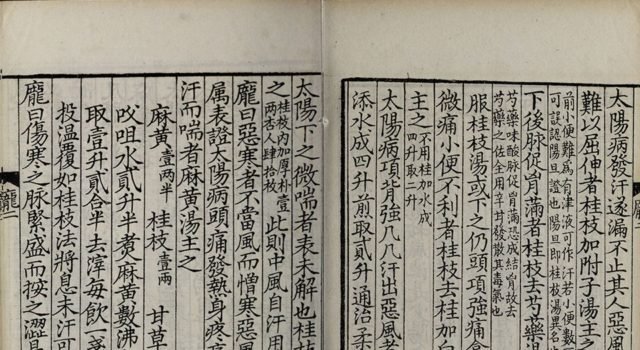 太陽病發汗遂漏不止其人惡風
難以屈伸者桂枝加附子湯主
前小便難為有津液可作汗若小便數
可誤認陽旦證也陽旦即桂枝湯異名
下後脉促胷滿者桂枝去芍藥
芍藥味酸脉促胷滿恐成結胷故去
芍藥之佐全用辛甘發散其毒氣也
服桂枝湯或下之仍頭項強痛
微痛小便不利者桂枝去桂加白
主之
不用桂加水成
四升取二升
太陽病項背強几几汗出惡風者
添水成四升煎取貳升通治柔
太陽下之微喘者表未解也桂枝
之
桂枝內加厚朴壹
兩杏人肆拾枚
此則中風自汗用
龐曰惡寒者不當風而憎寒惡
属表證太陽病頭痛發熱身疼
汗而喘者麻黃湯主之
麻黃壹兩半 桂枝壹兩 甘草
㕮咀水貳升半煑麻黃數沸
取壹升貳合半去滓每飲一
投温覆如桂枝法將息未汗可
龐曰傷寒之脉緊盛而按之澀是